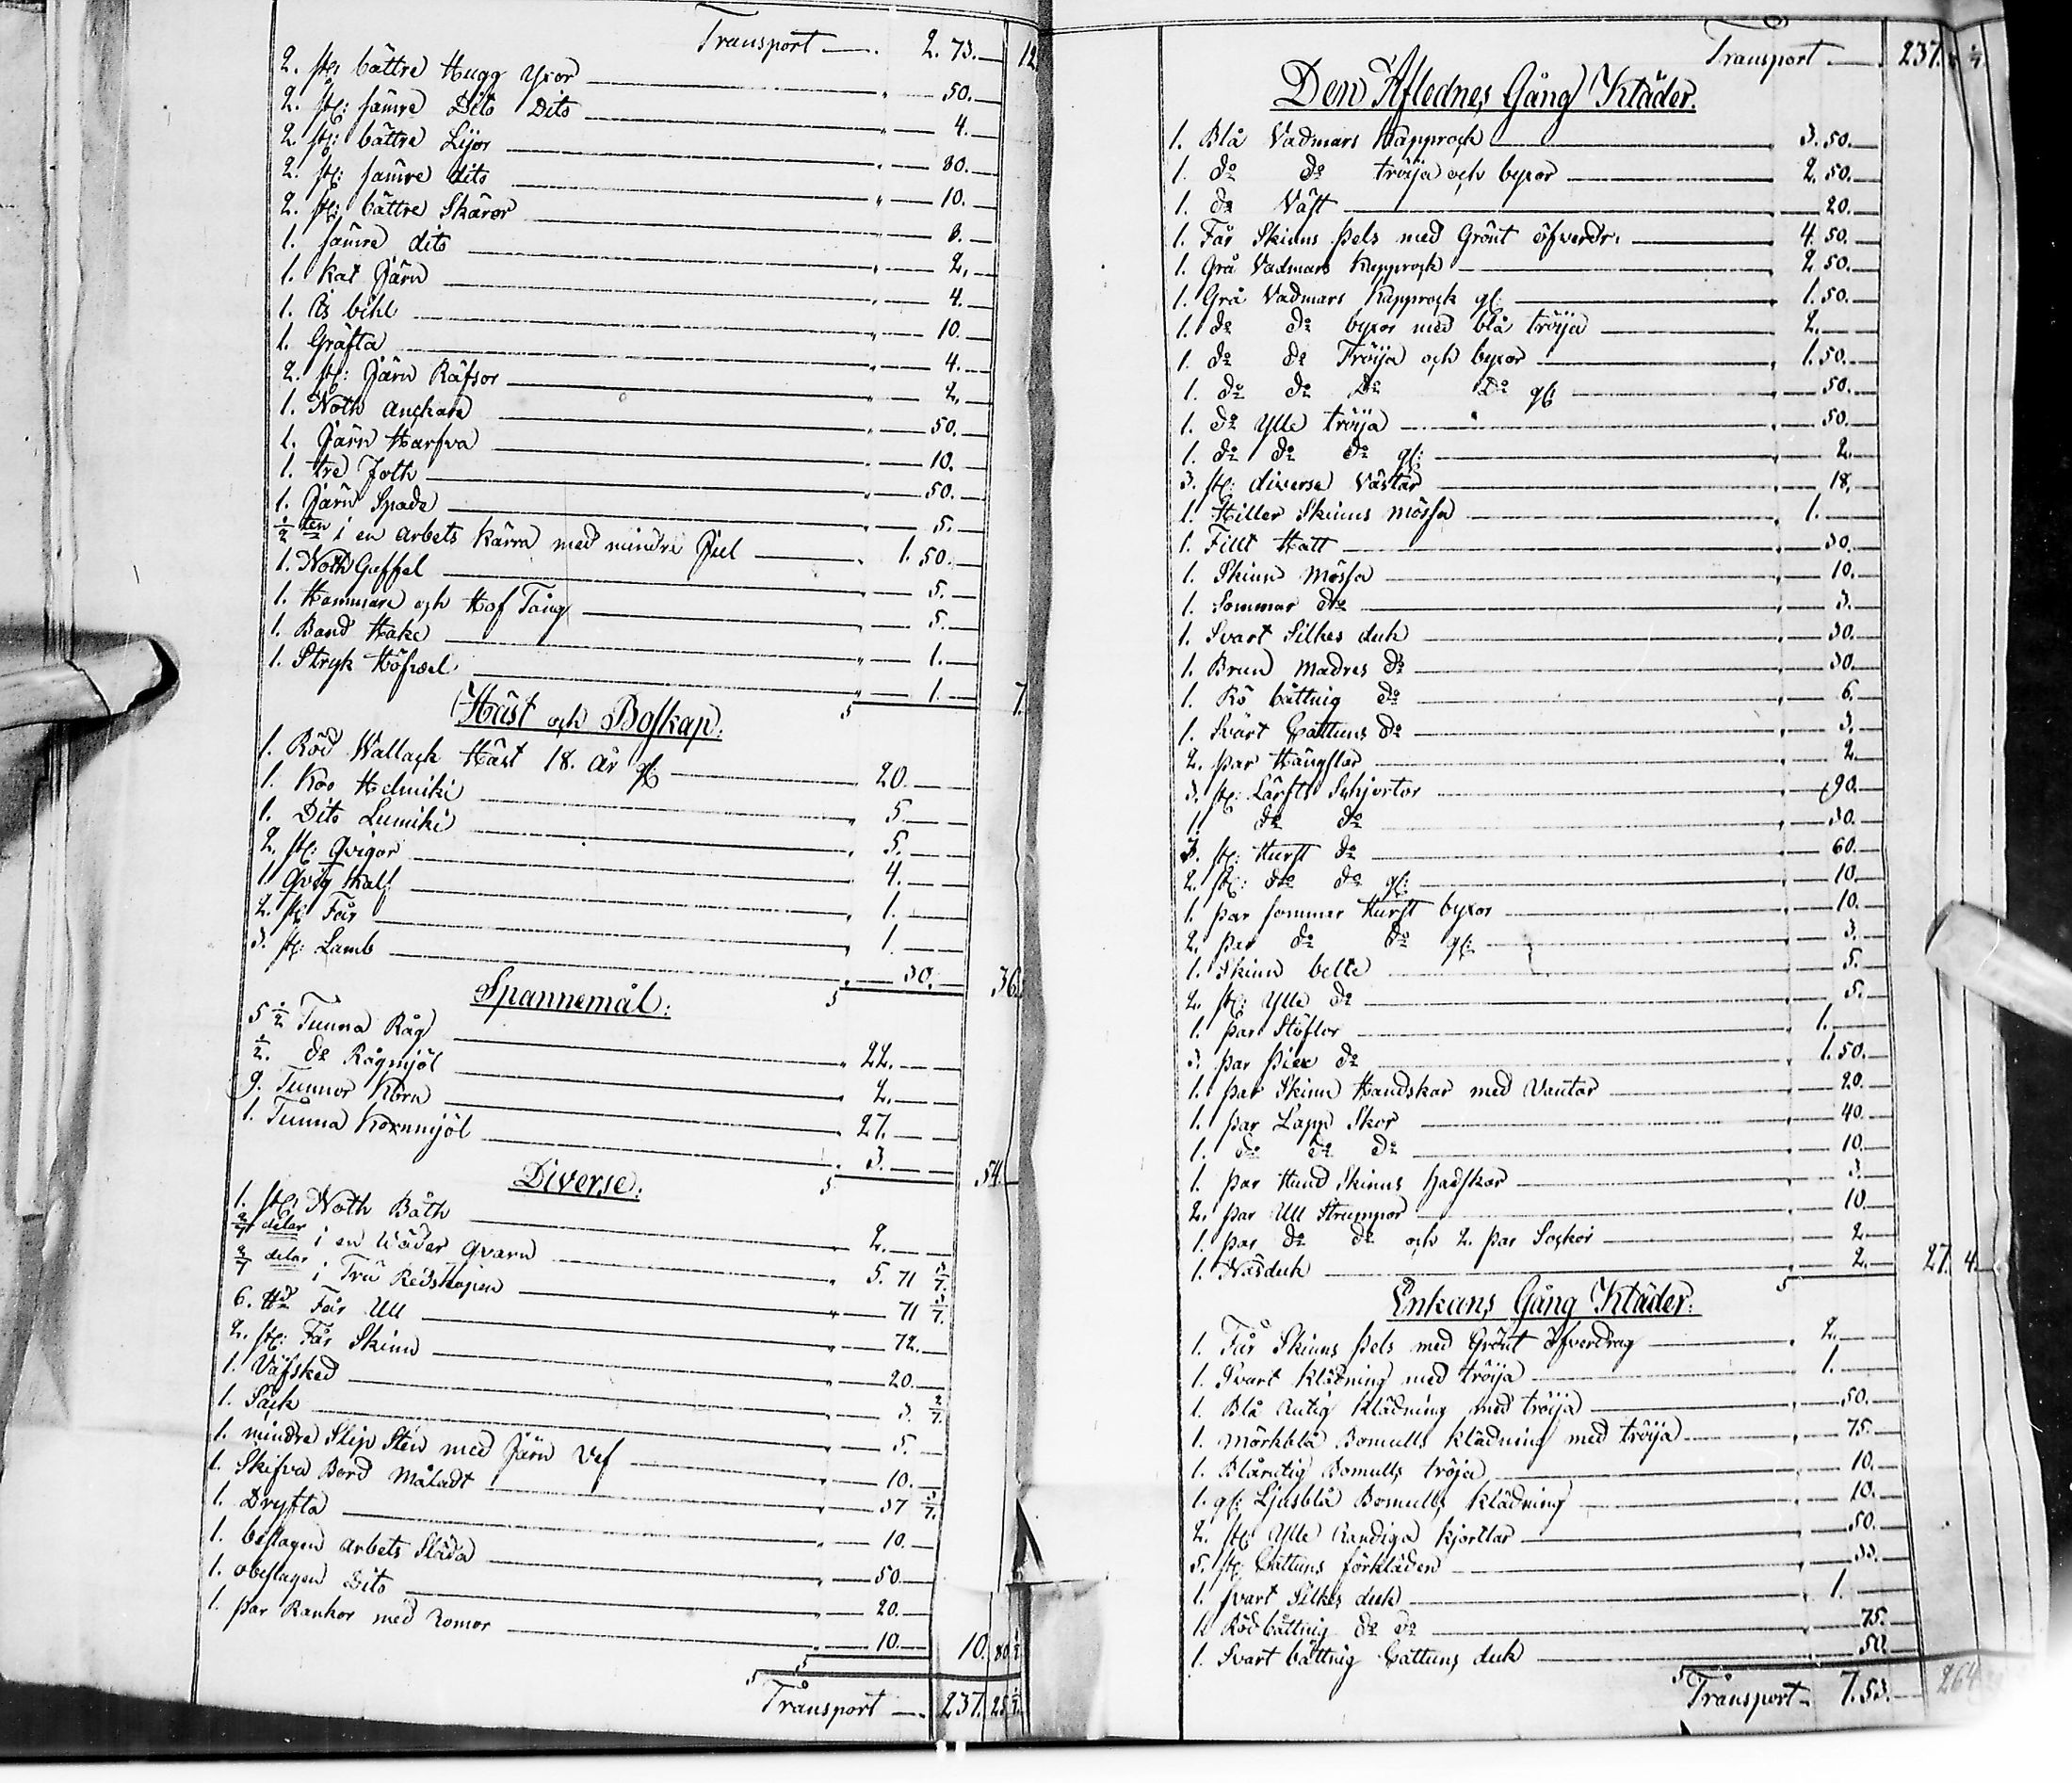 Transport — 2. 73. 12
2. st: bättre Hugg Yxor — 50.
2. st: sämre Dito Dito — 4.
2. st: bättre Lijor — 80.
2. st: sämre dito — 10.
2. st: bättre Skäror — 8.
1. sämre dito — 2.
1. Kat Järn — 4.
1. Ås bihl — 10.
1. Gräfta — 4.
2. st: Järn Räfsor — 2.
1. Noth anckare — 50.
1. Järn Harfva — 10.
1. tre Joth — 50.
1. Järn Spade — 5.
1/2 ten i en arbets Kärra med mindre Jul — 1. 50.
1. Noth Gaffel — 5.
1. Hammare och Hof Tång — 5.
1. Band Hake — 1.
1. Stryk Höfvel — 1. 7.
Häst och Boskap.
1. Röd Wallack Häst 18. år gl: — 20.
1. Koo Helmiki — 5.
1. Dito Lumiki — 5.
2. st: Qvigor — 4.
1. Qvig Kalf — 1.
2. st: Får — 1.
3. st: Lamb — 30. 36.
Spannemål:
5 1/2 Tunna Råg — 22.
1/2. do Rågmjöl — 2.
9. Tunnor Korn — 27.
1. Tunna Kornmjöl — 3. 54.
Diverse:
1. st: Noth Båth — 2.
2/7 delar i en Wäder Qvarn — 5. 71 3/7.
2/7 delar i Trä Redskapen — 71 3/7.
6. Får Ull — 72.
2. st: Får Skinn — 20.
1. Väfsked — 3. 2/7.
1. Säck — 5.
1. mindre Slip Sten med Järn Vef — 10.
1. Skifva Bord Måladt — 37 3/7.
1. Dryfta — 10.
1. beslagen arbets Släda — 50.
1. obeslagen Dito — 20.
1. par Rankor med Romor — 10. 10. 80 1/2
Transport — 237. 25 1/2.
Transport — 237.
Den Aflednes Gång Kläder.
1. Blå Vadmars Kapprock — 3. 50.
1. do do tröija och byxor — 2. 50.
1. do Väst — 20.
1. Får Skinns Pels med Grönt öfverdr. — 4. 50.
1. Grå Vadmars Kapprock — 2. 50.
1. Grå Vadmars Kapprock gl: — 1. 50.
1. do do byxor med blå tröija — 2.
1. do do Tröija och byxor — 1. 50.
1. do do Do Do gl: — 50.
1. do Ylle tröija — 50.
1. do do do gl: — 2.
3. st: diverse Västar — 18.
1. Hiller Skinns mössa — 1.
1. Fillt Hatt — 30.
1. Skinn Mössa — 10.
1. Sommar do — 3.
1. Svart Silkes duk — 30.
1. Brun Madres do — 30.
1. Rö båttnig do — 6.
1. Svart Cattuns do — 3.
2. par Hängslar — 2.
3. st: Lärfts Schjortor — 90.
1. do do — 30.
3. st: Hurst do — 60.
2. st: do do gl: — 10.
1. par sommar Hurst byxor — 10.
2. par do do gl: — 3.
1. Skinn belte — 5.
2. st: Ylle do — 5.
1. par Stöflor — 1.
3. par Piex do — 1. 50.
1. par Skinn Handskar med Vantar — 20.
1. par Lapp Skor — 40.
1. do do do — 10.
1. par Hund Skinns hadskar — 3.
2. par Ull Strumpor — 10.
1. par do do och 2. par Sockor — 2.
1. Näsduk — 2. 27. 4.
Enkans Gång Kläder:
1. Får Skinns Pels med Grönt öfverdrag — 2.
1. Svart Klädning med tröija — 1.
1. Blå Rutig Klädning med tröija — 50.
1. Mörkblå Bomulls Klädning med tröija — 75.
1. Blårutig Bomulls tröja — 10.
1. gl: Ljusblå Bomulls Klädning — 10.
2. st: Ylle Randiga Kjortlar — 50.
5. st: Cattuns förkläden — 33.
1. svart Silkes duk — 1.
1. Röd båttnig do do — 75.
1. Svart båttnig Cattuns duk — 50.
Transport — 7. 53. 264